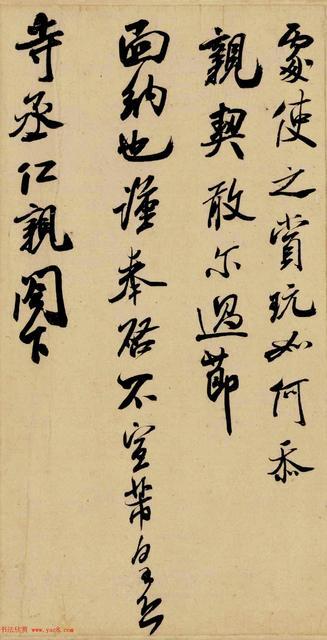 處使之賞玩如何忝
親契敢尔過節
面納也謹奉啓不宣芾
寺丞仁親閣下
书法欣赏
www.yac8.com